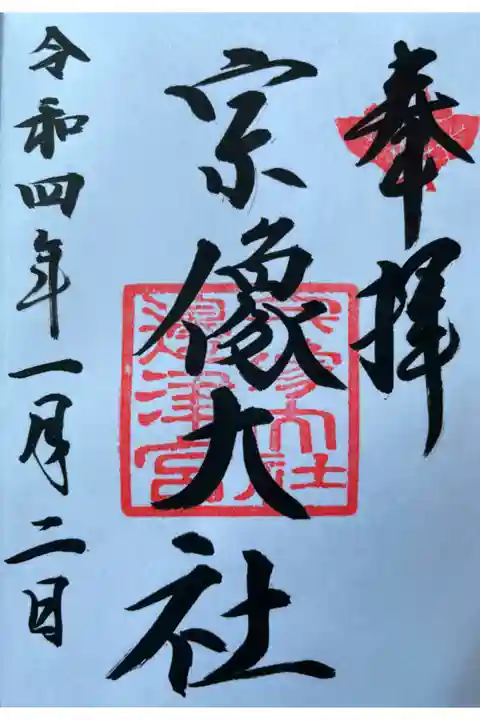 奉拝
宗像大社
宗像大社
邊津宮
令和四年一月二日